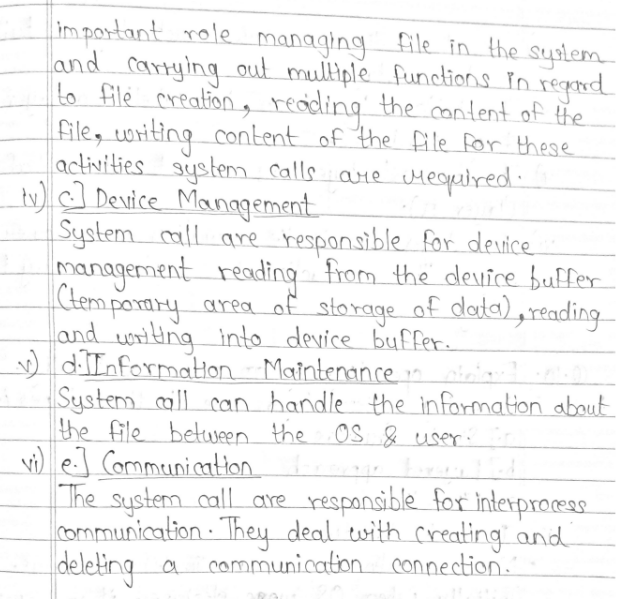 important role managing file in the system
and carrying out multiple functions in regard
to file creation, reading the content of the
file, writing content of the file for these
activities system calls are required.
iv) c.] Device Management
System call are responsible for device
management reading from the device buffer
(temporary area of storage of data), reading
and writing into device buffer.
v) d.] Information Maintenance
System call can handle the information about
the file between the OS & user.
vi) e.] Communication
The system call are responsible for interprocess
communication. They deal with creating and
deleting a communication connection.